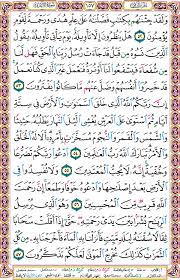 ١٥٧
وَلَقَدْ جِئْنَٰهُم بِكِتَٰبٍ فَصَّلْنَٰهُ عَلَىٰ عِلْمٍ هُدًى وَرَحْمَةً لِّقَوْمٍ
يُؤْمِنُونَ ٥٢ هَلْ يَنظُرُونَ إِلَّا تَأْوِيلَهُۥ يَوْمَ يَأْتِى تَأْوِيلُهُۥ يَقُولُ
ٱلَّذِينَ نَسُوهُ مِن قَبْلُ قَدْ جَآءَتْ رُسُلُ رَبِّنَا بِٱلْحَقِّ فَهَل لَّنَا
مِن شُفَعَآءَ فَيَشْفَعُوا۟ لَنَآ أَوْ نُرَدُّ فَنَعْمَلَ غَيْرَ ٱلَّذِى كُنَّا نَعْمَلُ
قَدْ خَسِرُوٓا۟ أَنفُسَهُمْ وَضَلَّ عَنْهُم مَّا كَانُوا۟ يَفْتَرُونَ ٥٣
إِنَّ رَبَّكُمُ ٱللَّهُ ٱلَّذِى خَلَقَ ٱلسَّمَٰوَٰتِ وَٱلْأَرْضَ فِى سِتَّةِ
أَيَّامٍ ثُمَّ ٱسْتَوَىٰ عَلَى ٱلْعَرْشِ يُغْشِى ٱلَّيْلَ ٱلنَّهَارَ يَطْلُبُهُۥ حَثِيثًا
وَٱلشَّمْسَ وَٱلْقَمَرَ وَٱلنُّجُومَ مُسَخَّرَٰتٍۭ بِأَمْرِهِۦٓ أَلَا لَهُ ٱلْخَلْقُ
وَٱلْأَمْرُ تَبَارَكَ ٱللَّهُ رَبُّ ٱلْعَٰلَمِينَ ٥٤ ٱدْعُوا۟ رَبَّكُمْ تَضَرُّعًا
وَخُفْيَةً إِنَّهُۥ لَا يُحِبُّ ٱلْمُعْتَدِينَ ٥٥ وَلَا تُفْسِدُوا۟ فِى
ٱلْأَرْضِ بَعْدَ إِصْلَٰحِهَا وَٱدْعُوهُ خَوْفًا وَطَمَعًا إِنَّ رَحْمَتَ
ٱللَّهِ قَرِيبٌ مِّنَ ٱلْمُحْسِنِينَ ٥٦ وَهُوَ ٱلَّذِى يُرْسِلُ
ٱلرِّيَٰحَ بُشْرًۢا بَيْنَ يَدَىْ رَحْمَتِهِۦ حَتَّىٰٓ إِذَآ أَقَلَّتْ سَحَابًا
ثِقَالًا سُقْنَٰهُ لِبَلَدٍ مَّيِّتٍ فَأَنزَلْنَا بِهِ ٱلْمَآءَ فَأَخْرَجْنَا بِهِۦ مِن كُلِّ
ٱلثَّمَرَٰتِ كَذَٰلِكَ نُخْرِجُ ٱلْمَوْتَىٰ لَعَلَّكُمْ تَذَكَّرُونَ ٥٧